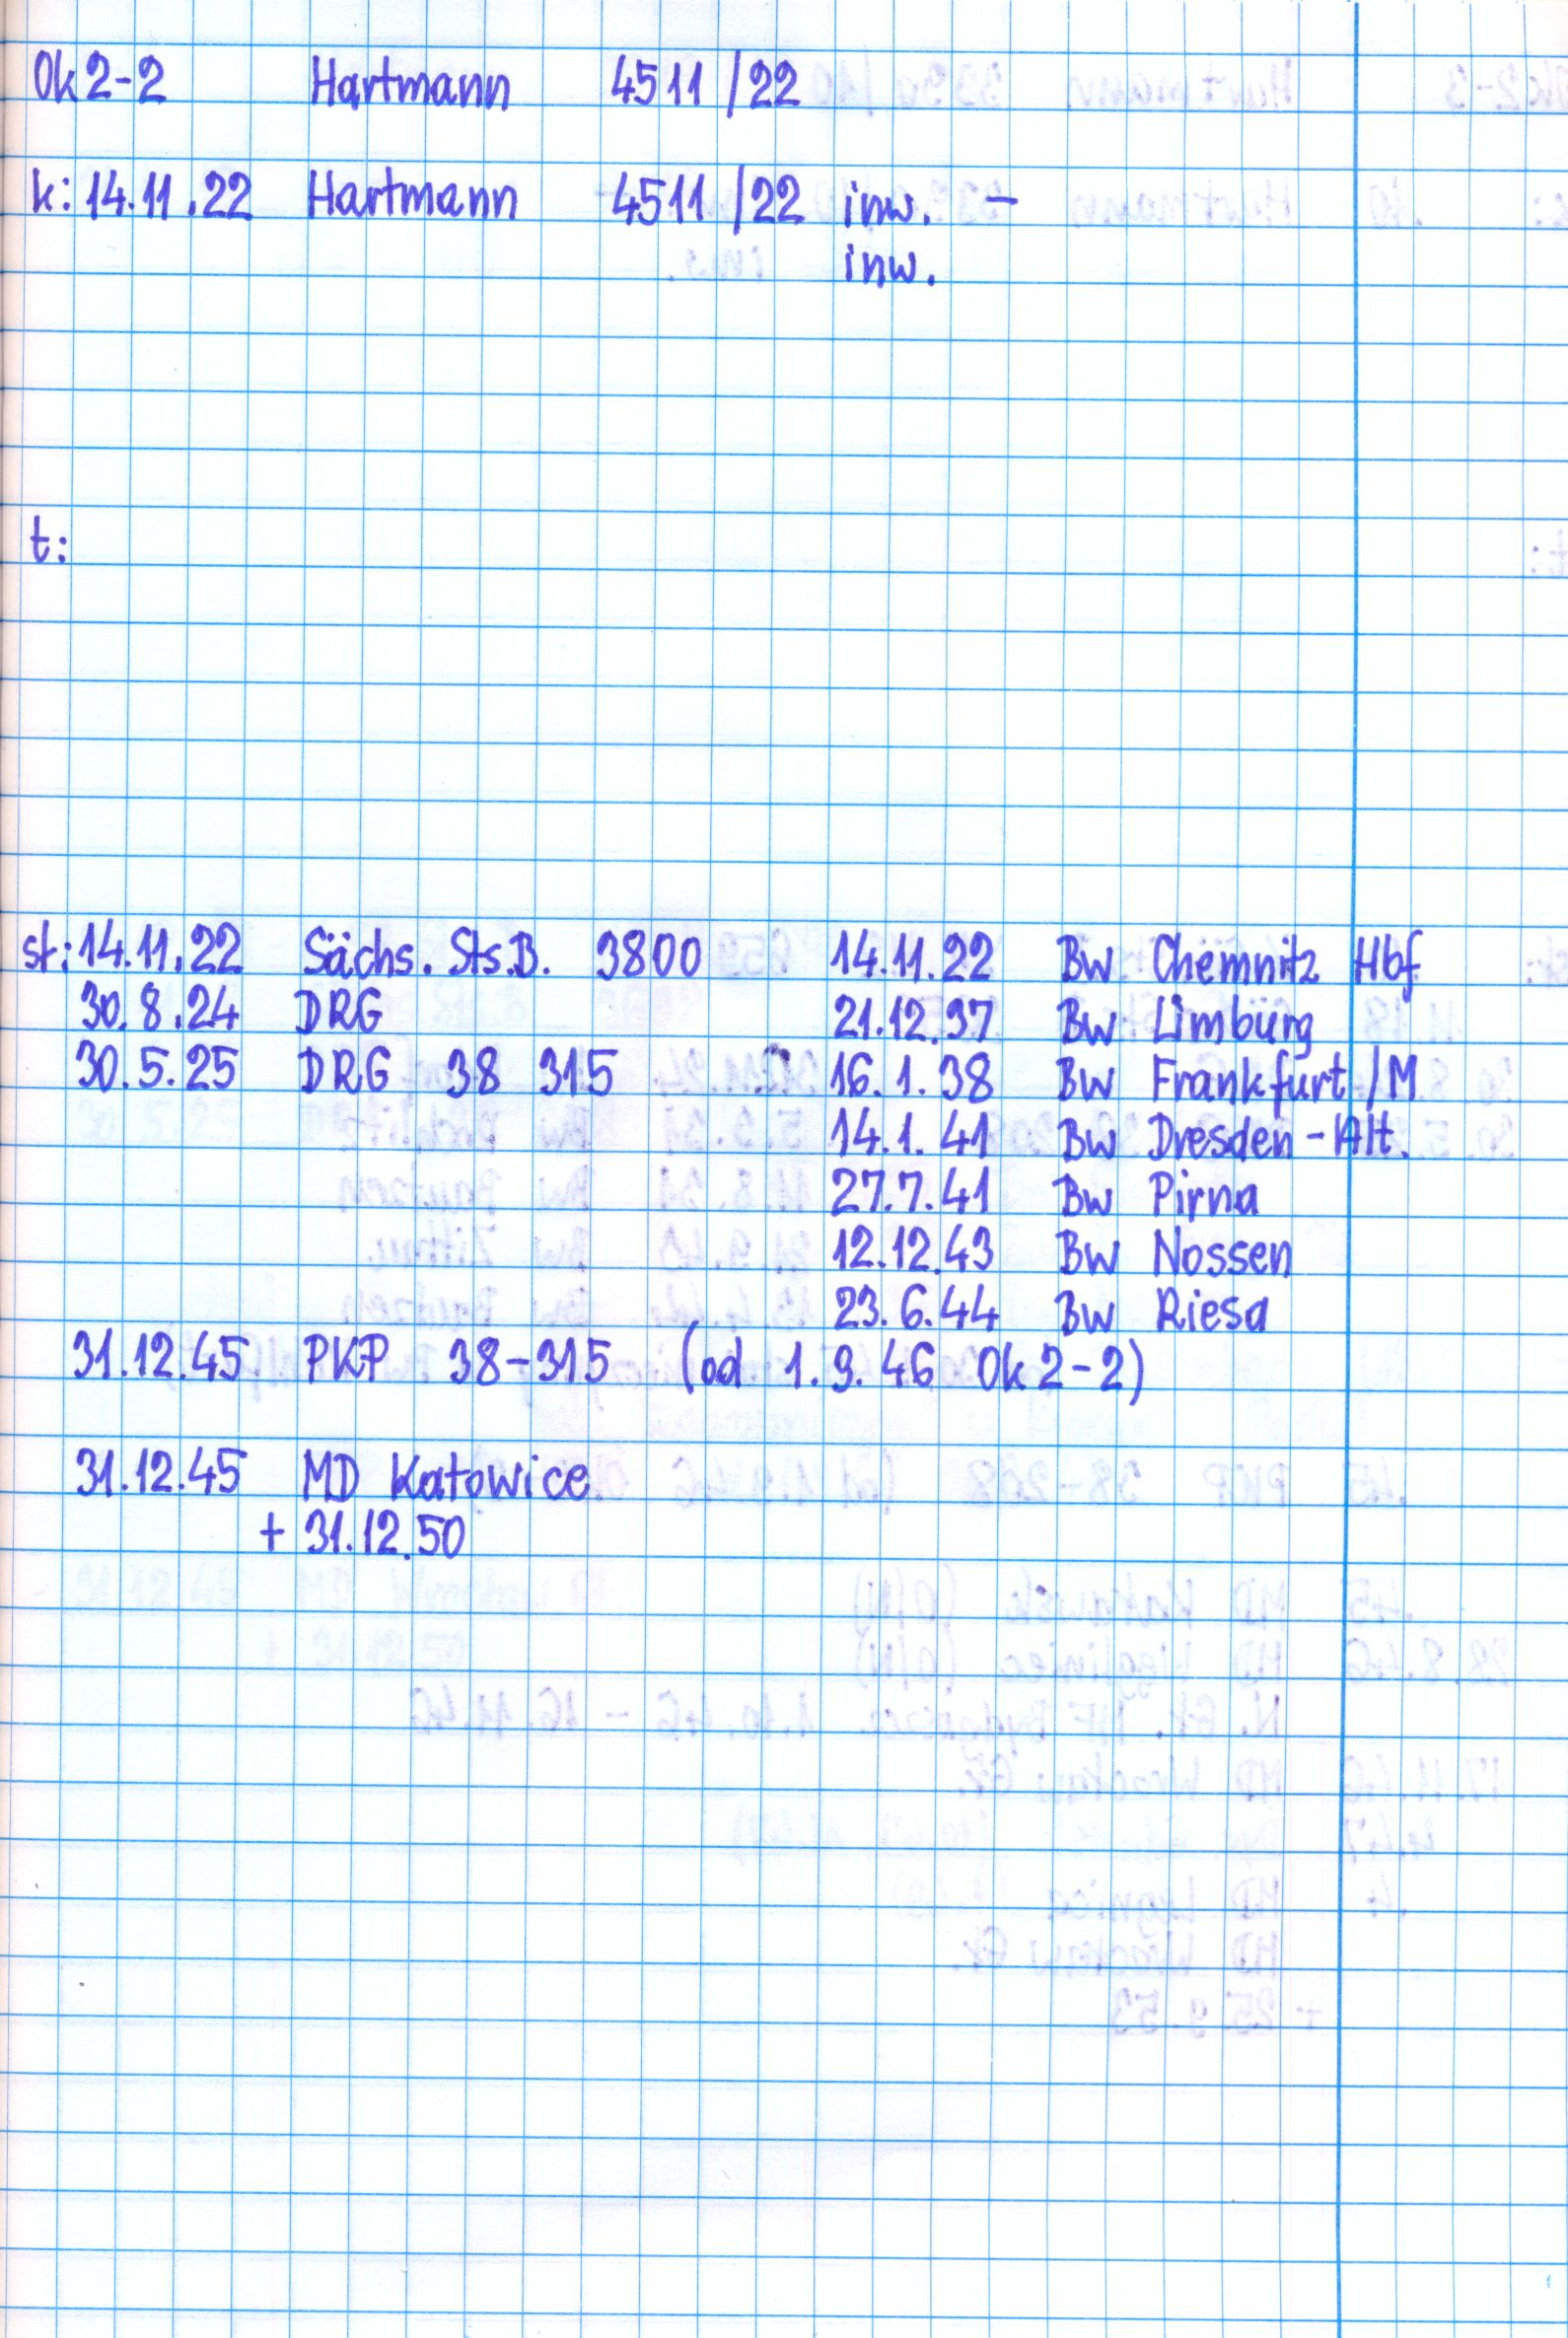 Ok2-2 Hartmann 4511/22
k: 14.11.22 Hartmann 4511/22 inw. -
inw.
t:
st: 14.11.22 Sächs. Sts.B. 3800 14.11.22 Bw Chemnitz Hbf
30.8.24 DRG 21.12.37 Bw Limburg
30.5.25 DRG 38 315 16.1.38 Bw Frankfurt/M
14.1.41 Bw Dresden-Alt.
27.7.41 Bw Pirna
12.12.43 Bw Nossen
23.6.44 Bw Riesa
31.12.45 PKP 38-315 (od 1.9.46 Ok2-2)
31.12.45 MD Katowice
+ 31.12.50